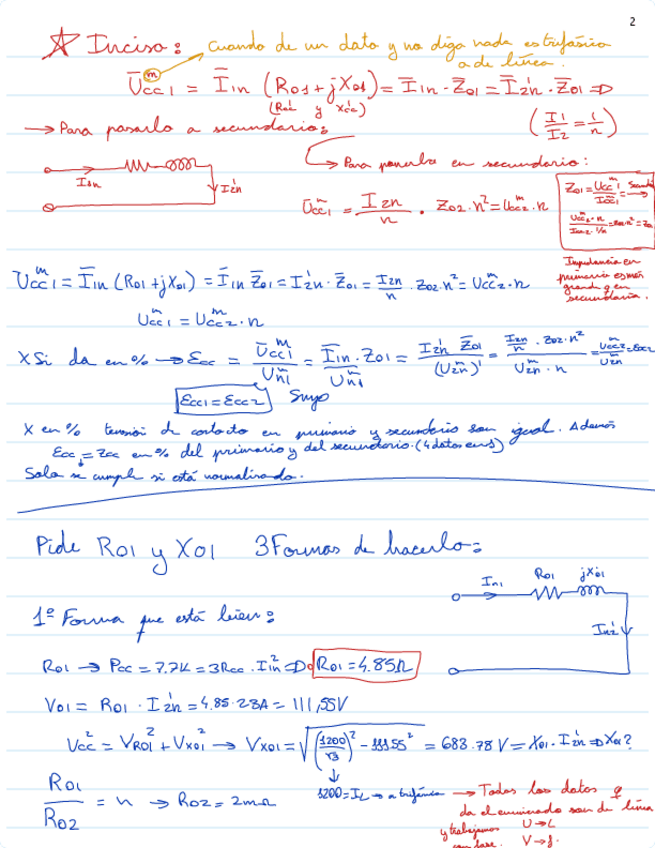 2
☆ Inciso: Cuando de un dato y no diga nada es trifásico
o de línea.
U̅cc1^m = I̅1n (R01 + jX01) = I̅1n · Z̅01 = I̅2n' · Z̅01 ⇒
(Rcc' y Xcc') (I1/I2 = 1/n)
→ Para pasarlo a secundario:
I1n I2n'
↳ Para ponerlo en secundario:
Ucc1^m = I2n/n · Z02 · n² = Ucc2^m · n
Z01 = Ucc1^m/Icc1 =
Impedancia en
primario es más
grande q en
secundaria.
U̅cc1^m = I̅1n (R01 + jX01) = I̅1n Z̅01 = I2n' · Z̅01 = I2n/n · Z02 · n² = Ucc2^m · n
Ucc1^m = Ucc2^m · n
X Si da en % → Ecc = U̅cc1^m/Un1^m = I̅1n · Z01/Un1^m = I2n' Z̅01/(U2n^m)' = I2n/n · Z02 · n²/U2n^m · n = Ucc2^m/U2n^m = Ecc2
Ecc1 = Ecc2
X en % tensión de contacto en primario y secundario son igual. Además
Ecc = Zcc en % del primario y del secundario. (4 datos en 1)
Solo se cumple si está normalizado.
Pide R01 y X01 3 Formas de hacerlo:
In1 R01 jX01
In2'
1º Forma que está bien:
R01 → Pcc = 7.7K = 3Rcc · I1n² ⇒ R01 = 4.85Ω
V01 = R01 · I2n' = 4.85·23A = 111,55V
Ucc² = VR01² + Vx01² → Vx01 = √((1200/√3)² - 111.55²) = 683.78 V = X01 · I2n' ⇒ X01?
R01/R02 = n → R02 = 2mΩ
1200 = IL → a trifásico → Todos los datos q
da el enunciado son de línea
y trabajamos U→L
con fase. V→f.